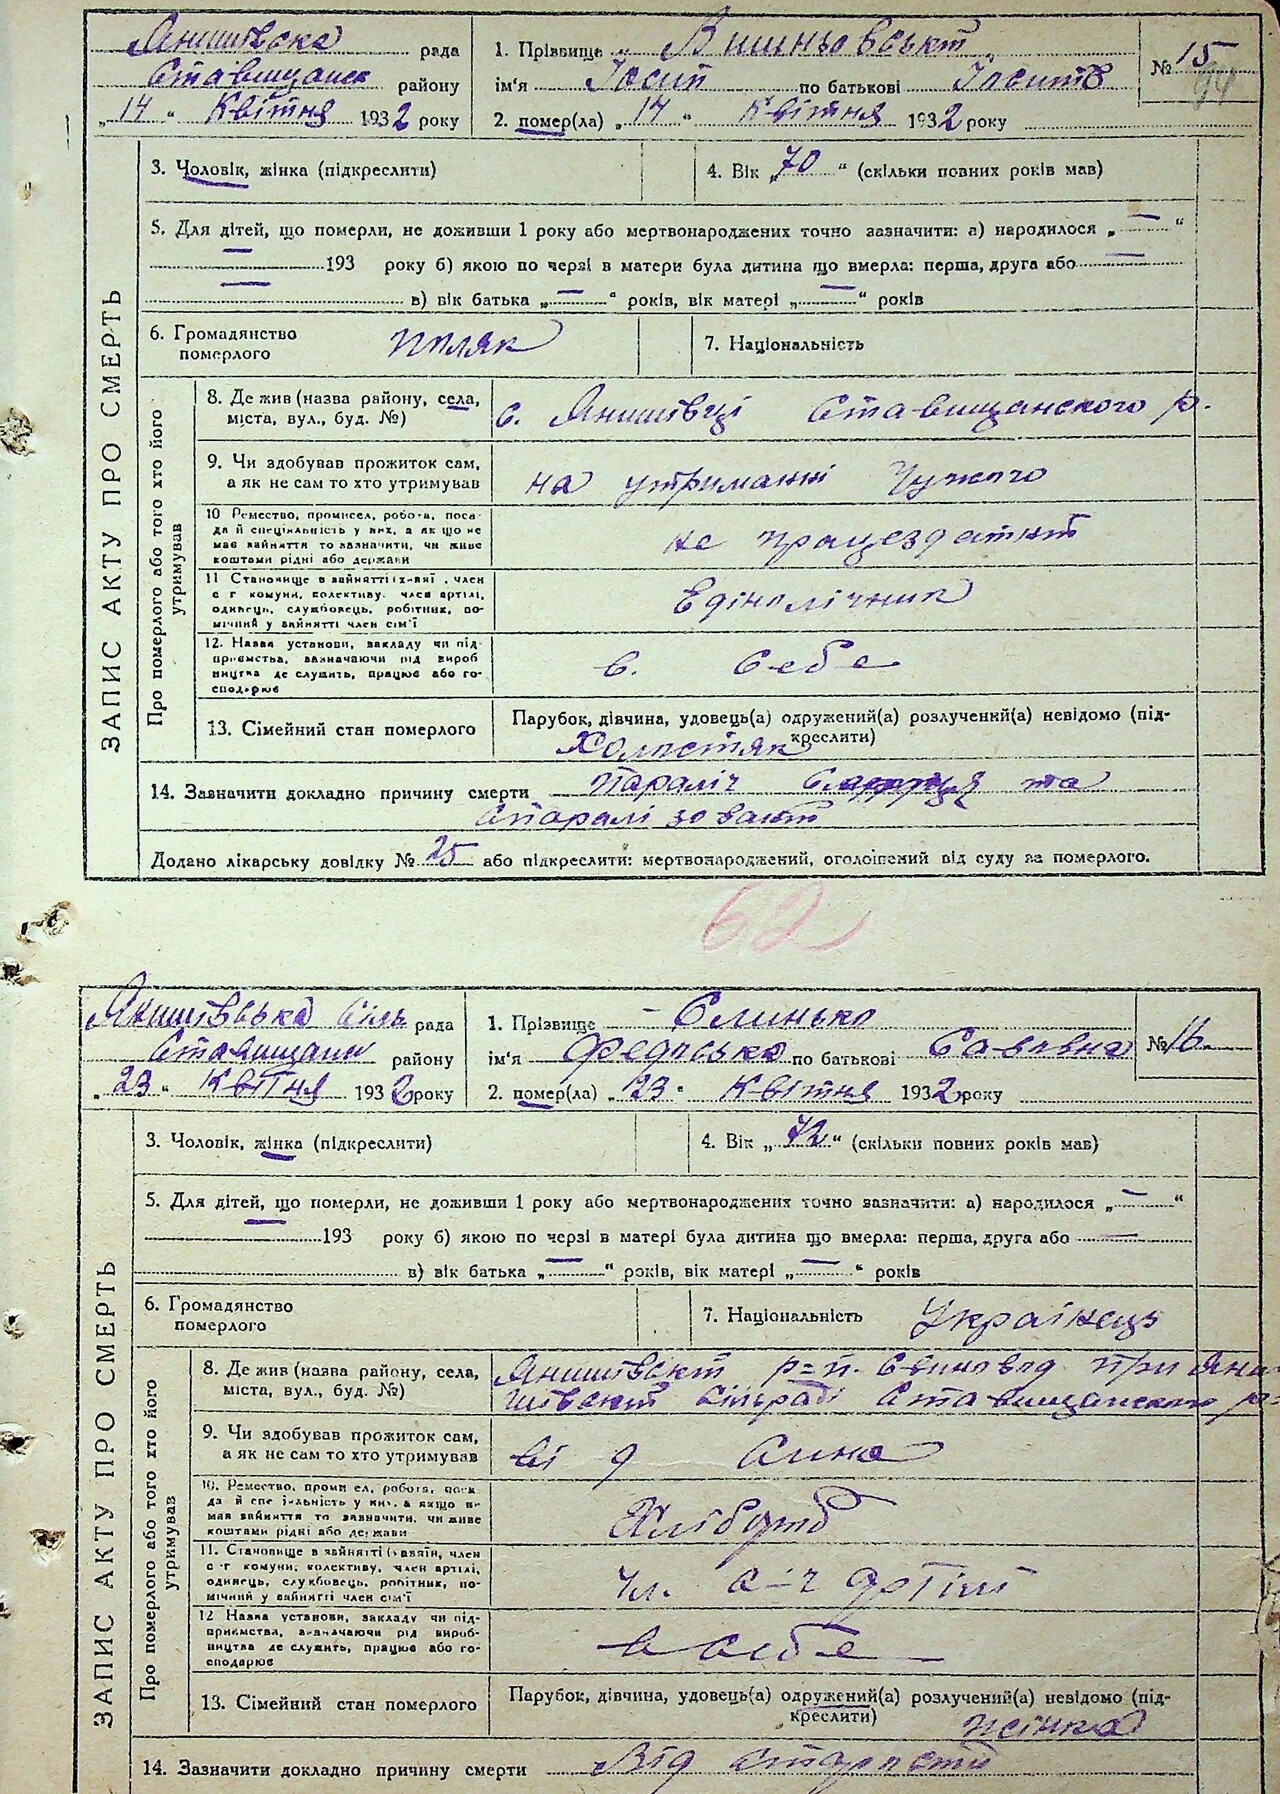 Янишівска рада
Ставищанск району
„14“ Квітня 1932 року
1. Прізвище Вишньовський
ім'я Йосип по батькові Йосипів
№ 15
2. помер(ла) „14“ Квітня 1932 року
3. Чоловік, жінка (підкреслити)
4. Вік „70“ (скільки повних років мав)
5. Для дітей, що померли, не доживши 1 року або мертвонароджених точно зазначити: а) народилося „—“
193 року б) якою по черзі в матери була дитина що вмерла: перша, друга або —
в) вік батька „—“ років, вік матері „—“ років
6. Громадянство
померлого поляк
7. Національність
ЗАПИС АКТУ ПРО СМЕРТЬ
Про померлого або того хто його утримував
8. Де жив (назва району, села,
міста, вул., буд. №)
с. Янишівці Ставищанского р.
9. Чи здобував прожиток сам,
а як не сам то хто утримував
на утриманні Чужого
10 Ремество, промисел, робота, поса-
да й спеціяльність у них, а як що не
має зайняття то зазначити, чи живе
коштами рідні або держави
не працездатний
11 Становище в зайнятті (х-вяї, член
с г комуни, колективу, член артілі,
одинець, службовець, робітник, по-
мічний у зайнятті член сім'ї
Єдіноличник
12. Назва установи, закладу чи під-
приємства, зазначаючи рід вироб
ництва де служить, працює або го-
сподарює
в. Себе
13. Сімейний стан померлого
Парубок, дівчина, удовець(а) одружений(а) розлучений(а) невідомо (під-
креслити)
Холостяк
14. Зазначити докладно причину смерти параліч та
Спаралізований
Додано лікарську довідку № 25 або підкреслити: мертвонароджений, оголошений від суду за померлого.
62
Янишівська Сіль рада
Ставищанск району
„23“ Квітня 1932 року
1. Прізвище Слинько
ім'я Федоська по батькові Савовна
№ 16.
2. помер(ла) „23“ Квітня 1932 року
3. Чоловік, жінка (підкреслити)
4. Вік „72“ (скільки повних років мав)
5. Для дітей, що померли, не доживши 1 року або мертвонароджених точно зазначити: а) народилося „—“
193 року б) якою по черзі в матері була дитина що вмерла: перша, друга або —
в) вік батька „—“ років, вік матері „—“ років
6. Громадянство
померлого
7. Національність Українець
ЗАПИС АКТУ ПРО СМЕРТЬ
Про померлого або того хто його утримував
8. Де жив (назва району, села,
міста, вул., буд. №)
Янишівский р-п. Свиновод при Яни-
шівский сільраді Ставищанского р-
9. Чи здобував прожиток сам,
а як не сам то хто утримував
від Сина
10. Ремество, промисел, робота, поса-
да й спеціяльність у них, а якщо не
має зайняття то зазначити, чи живе
коштами рідні або держави
Хлібороб
11. Становище в зайнятті (хазяїн, член
с-г комуни, колективу, член артілі,
одинець, службовець, робітник, по-
мічний у зайнятті член сім'ї
чл. с-г артілі
12 Назва установи, закладу чи під-
приємства, зазначаючи рід вироб-
ництва де служить, працює або го-
сподарює
в себе
13. Сімейний стан померлого
Парубок, дівчина, удовець(а) одружений(а) розлучений(а) невідомо (під-
креслити) жінка
14. Зазначити докладно причину смерти Від старости